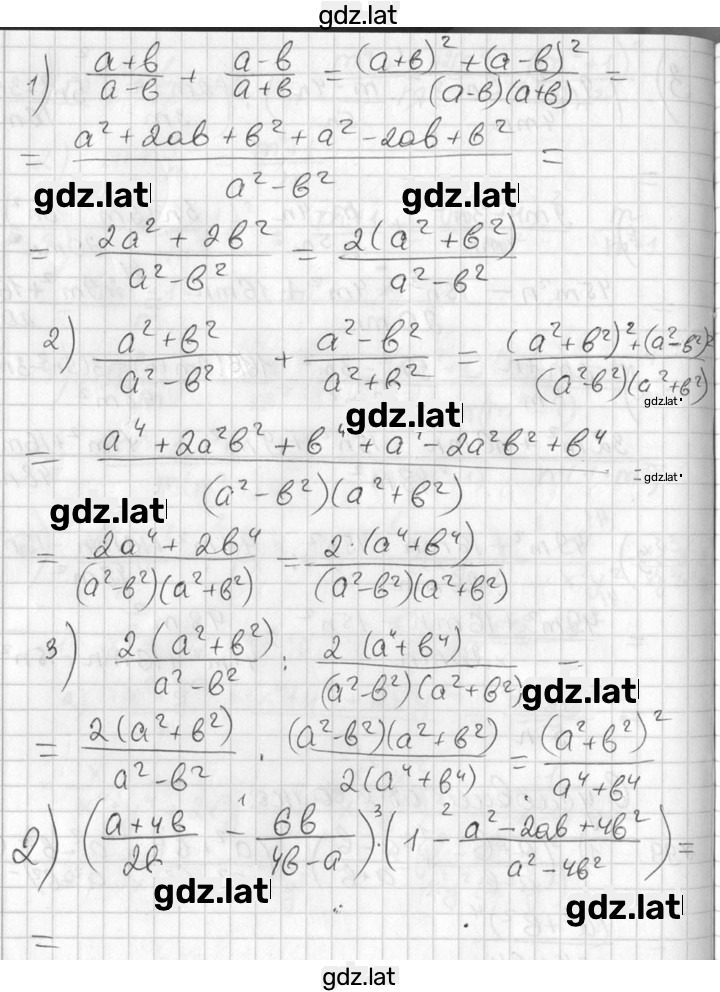 gdz.lat
1) (a+b)/(a-b) + (a-b)/(a+b) = ((a+b)² + (a-b)²)/((a-b)(a+b)) =
= (a² + 2ab + b² + a² - 2ab + b²)/(a² - b²) =
gdz.lat gdz.lat
= (2a² + 2b²)/(a² - b²) = 2(a² + b²)/(a² - b²)
2) (a² + b²)/(a² - b²) + (a² - b²)/(a² + b²) = ((a² + b²)² + (a² - b²)²)/((a² - b²)(a² + b²))
gdz.lat gdz.lat
= (a⁴ + 2a²b² + b⁴ + a - 2a²b² + b⁴)/((a² - b²)(a² + b²)) =
gdz.lat
gdz.lat
= (2a⁴ + 2b⁴)/((a² - b²)(a² + b²)) = 2·(a⁴ + b⁴)/((a² - b²)(a² + b²))
3) 2(a² + b²)/(a² - b²) : 2(a⁴ + b⁴)/((a² - b²)(a² + b²)) =
gdz.lat
= 2(a² + b²)/(a² - b²) · (a² - b²)(a² + b²)/(2(a⁴ + b⁴)) = (a² + b²)²/(a⁴ + b⁴)
1 3 2
2) ((a+4b)/(2b) - 6b/(4b-a)) : (1 - (a² - 2ab + 4b²)/(a² - 4b²)) =
gdz.lat gdz.lat
=
gdz.lat